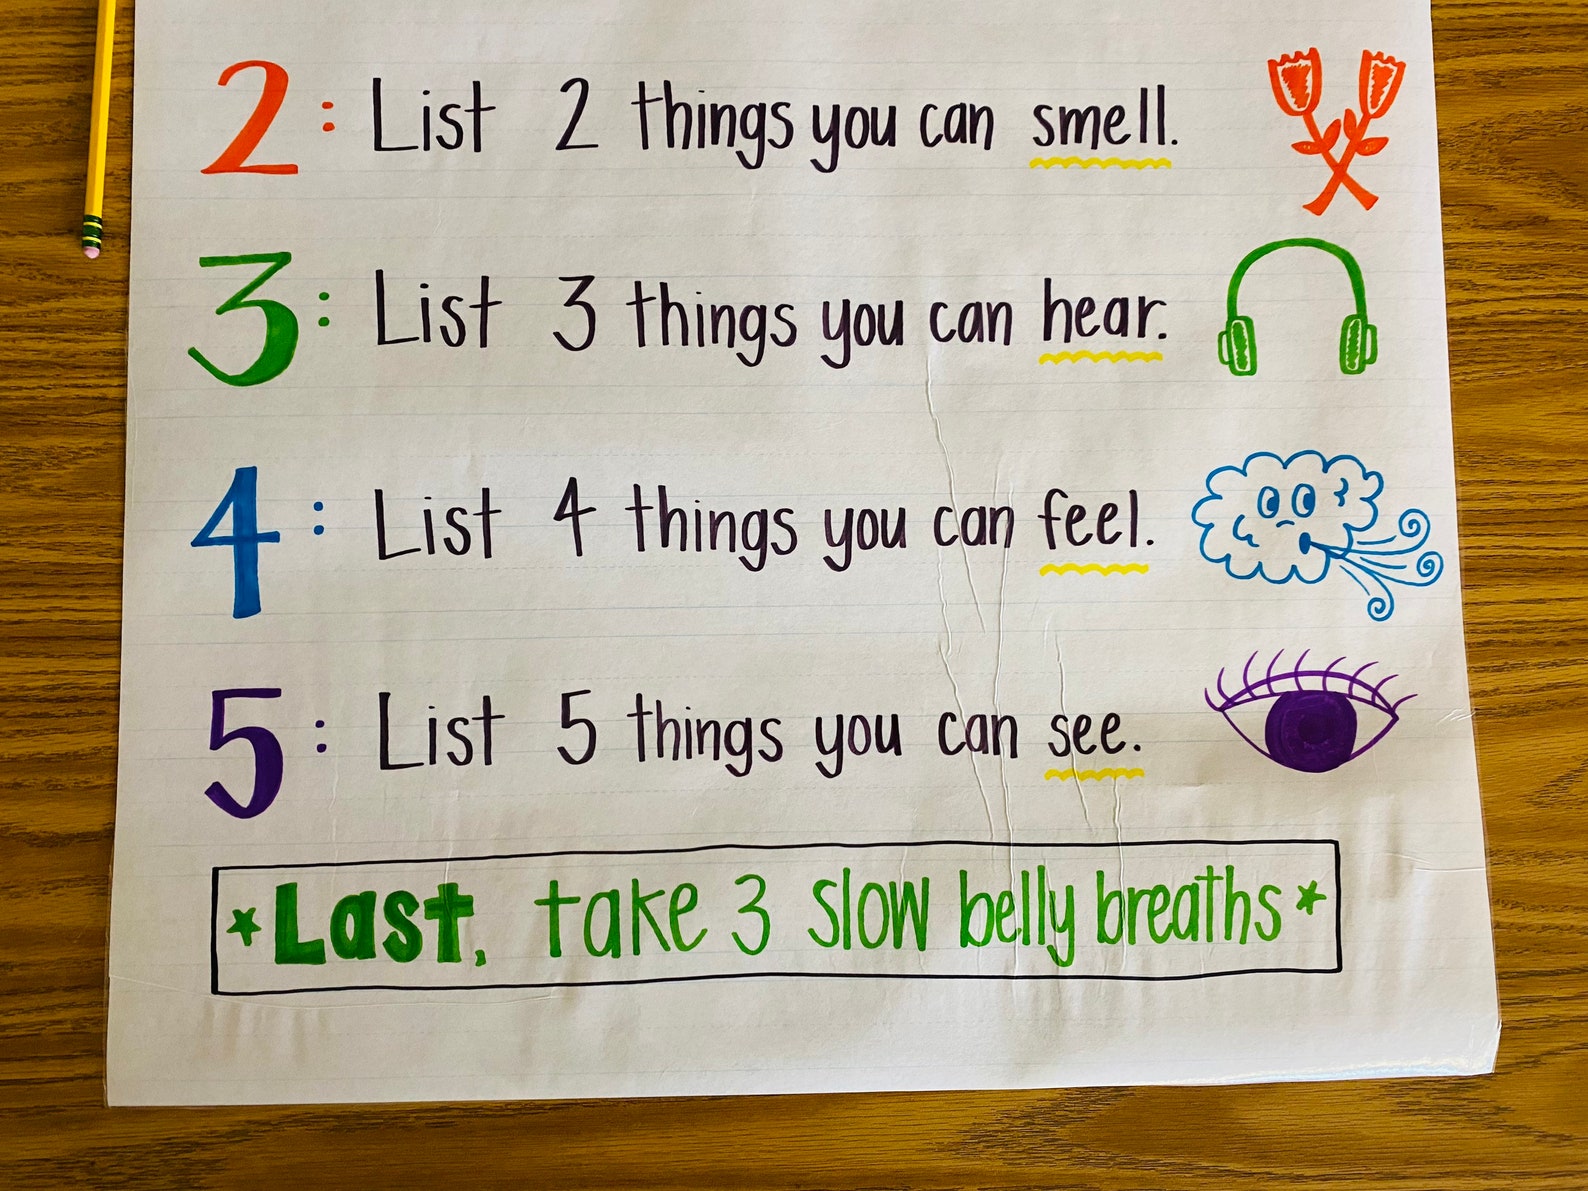 2: List 2 things you can smell.
3: List 3 things you can hear.
4: List 4 things you can feel.
5: List 5 things you can see.
*Last, take 3 slow belly breaths*